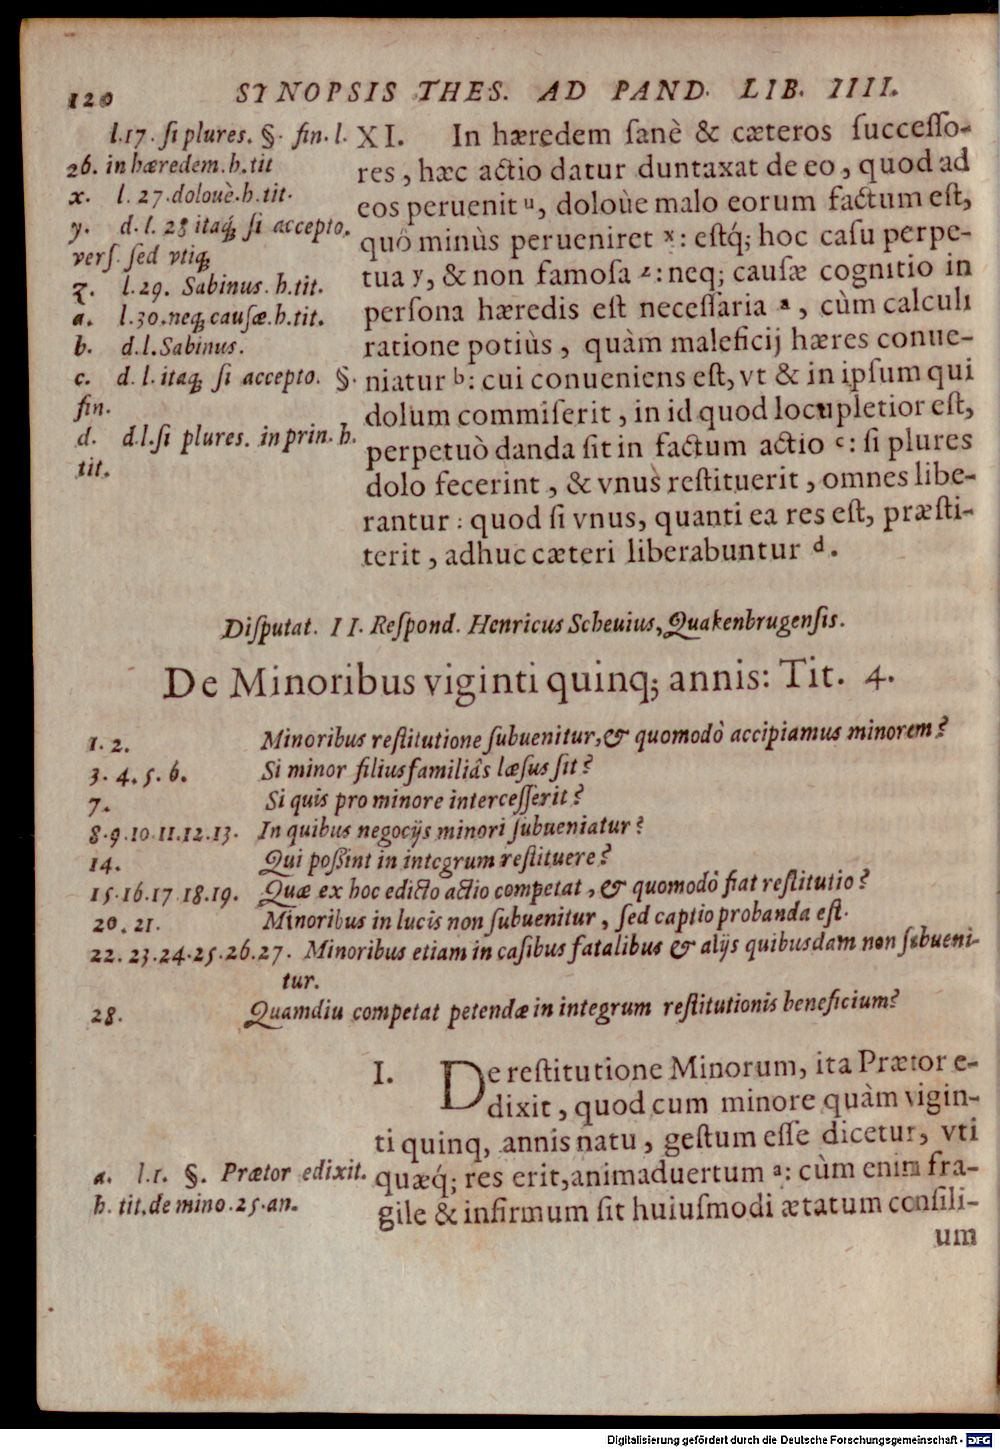 120 SYNOPSIS THES. AD PAND. LIB. IIII.
l.17. ſi plures. §. fin. l.
26. in hæredem. h. tit
x. l. 27. doloùè. h. tit.
y. d. l. 28 itaq; ſi accepto.
verſ. ſed vtiq;
z. l. 29. Sabinus. h. tit.
a. l.30. neq; cauſæ. h. tit.
b. d. l. Sabinus.
c. d. l. itaq; ſi accepto. §.
fin.
d. d.l. ſi plures. in prin. h.
tit.
XI. In hæredem ſanè & cæteros ſucceſſo-
res, hæc actio datur duntaxat de eo, quod ad
eos peruenit u, doloùe malo eorum factum eſt,
quô minùs perueniret x: eſtq́; hoc caſu perpe-
tua y, & non famoſa z: neq; cauſæ cognitio in
perſona hæredis eſt neceſſaria a, cùm calculi
ratione potiùs, quàm maleficij hæres conue-
niatur b: cui conueniens eſt, vt & in ipſum qui
dolum commiſerit, in id quod locupletior eſt,
perpetuò danda ſit in factum actio c: ſi plures
dolo fecerint, & vnus reſtituerit, omnes libe-
rantur: quod ſi vnus, quanti ea res eſt, præſti-
terit, adhuc cæteri liberabuntur d.
Diſputat. II. Reſpond. Henricus Scheuius, Quakenbrugenſis.
De Minoribus viginti quinq; annis: Tit. 4.
1. 2. Minoribus reſtitutione ſubuenitur, & quomodò accipiamus minorem?
3. 4. 5. 6. Si minor filiusfamiliâs læſus ſit?
7. Si quis pro minore interceſſerit?
8. 9. 10. 11. 12. 13. In quibus negocijs minori ſubueniatur?
14. Qui poßint in integrum reſtituere?
15. 16. 17. 18. 19. Quæ ex hoc edicto actio competat, & quomodò fiat reſtitutio?
20. 21. Minoribus in lucis non ſubuenitur, ſed captio probanda eſt.
22. 23. 24. 25. 26. 27. Minoribus etiam in caſibus fatalibus & alijs quibusdam non ſubueni-
tur.
28. Quamdiu competat petendæ in integrum reſtitutionis beneficium?
I. De reſtitutione Minorum, ita Prætor e-
dixit, quod cum minore quàm vigin-
ti quinq; annis natu, geſtum eſſe dicetur, vti
quæq́; res erit, animaduertum a: cùm enim fra-
gile & infirmum ſit huiuſmodi ætatum conſili-
um
a. l.1. §. Prætor edixit.
h. tit. de mino. 25. an.
Digitalisierung gefördert durch die Deutsche Forschungsgemeinschaft - DFG